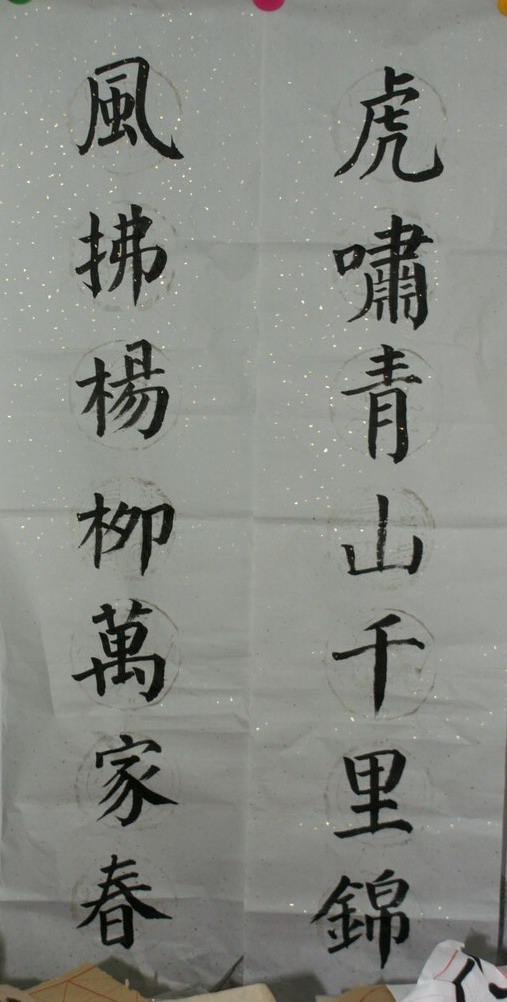 虎嘯青山千里錦
風拂楊柳萬家春